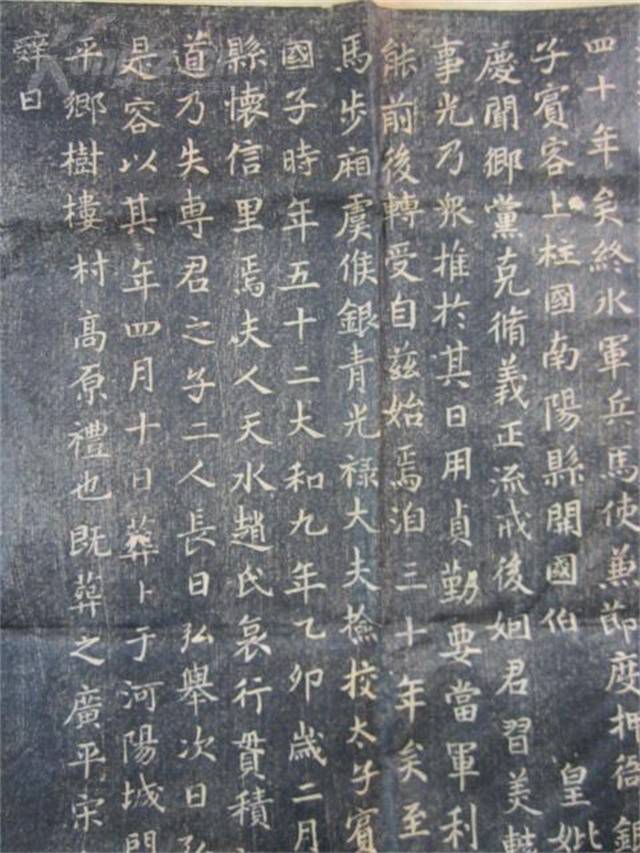 四十年矣終水軍兵馬使兼節度押衙銀
子賓客上柱國南陽縣開國伯 皇妣
慶聞鄉黨克脩義正流戒後姻君習美
事光乃眾推於其日用貞勤要當軍利
能前後轉受自茲始焉洎三十年矣至
馬步廂虞候銀青光祿大夫檢校太子賓
國子時年五十二大和九年乙卯歲二月
縣懷信里焉夫人天水趙氏哀行貫積
道乃失專君之子二人長曰弘舉次曰弘
是容以其年四月十日葬卜于河陽城門
平鄉樹樓村高原禮也既葬之廣平宋
辤曰